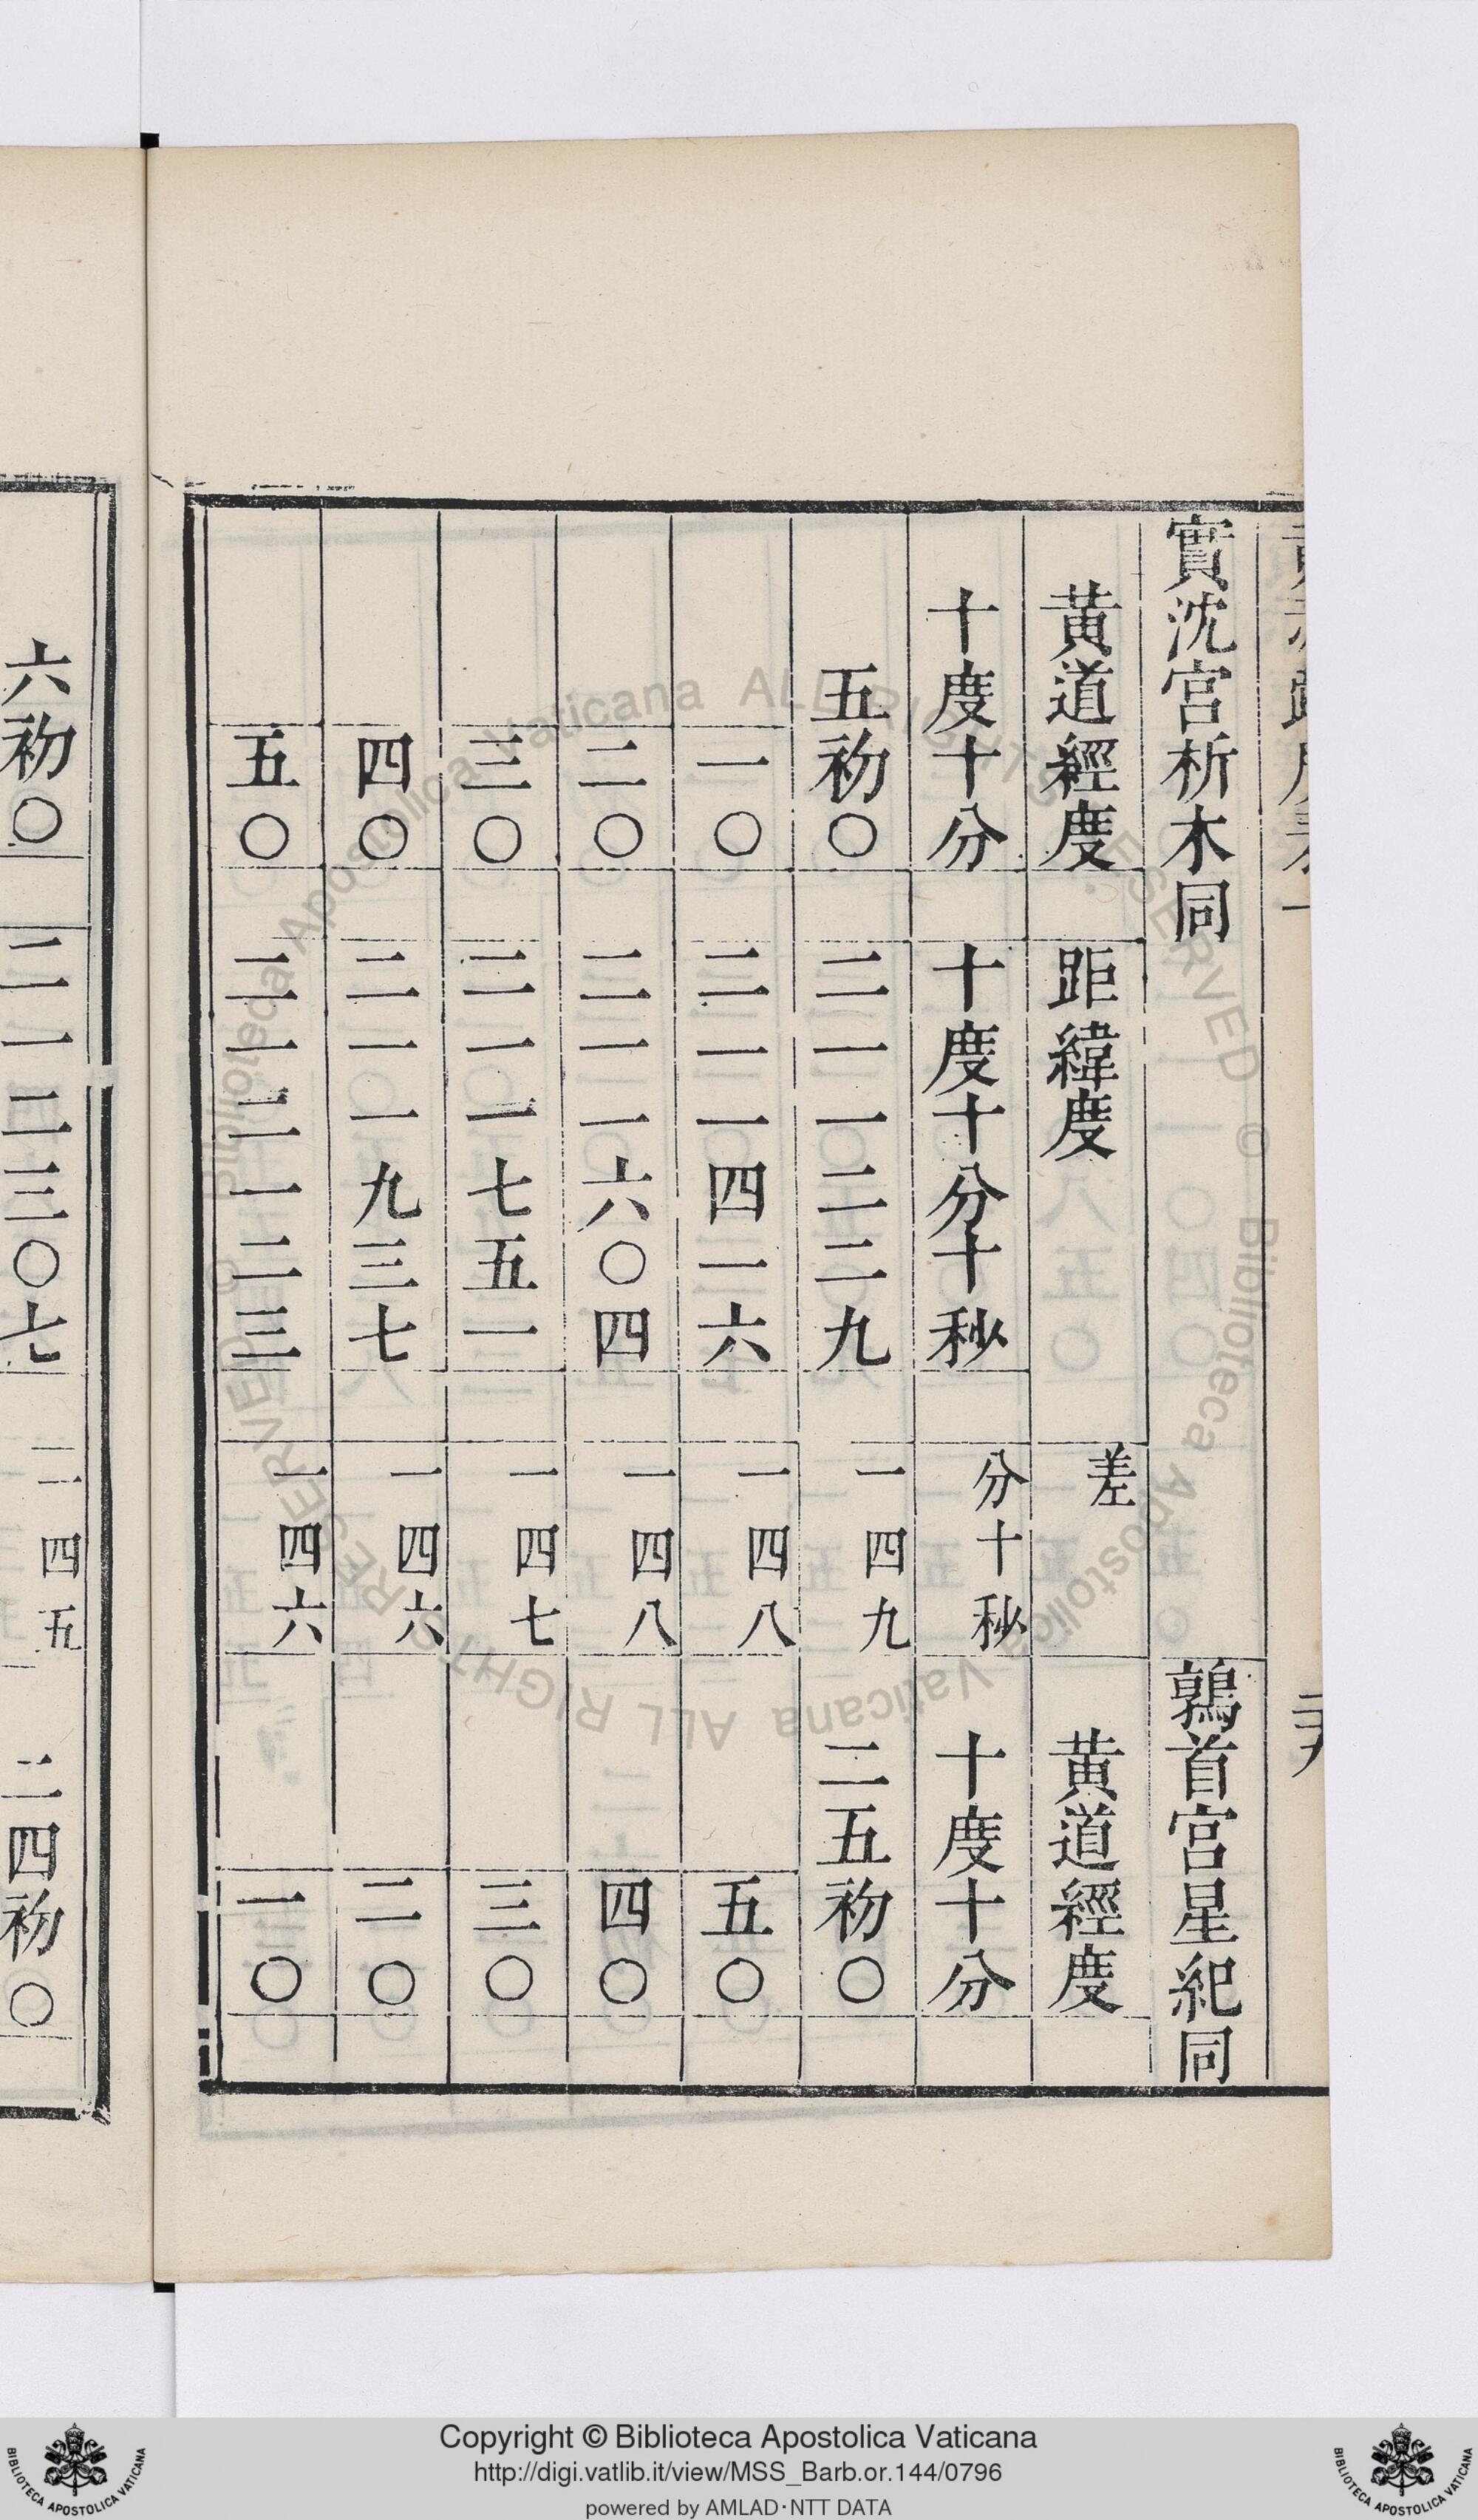 實沈宮析木同 鶉首宮星紀同
黃道經度 距緯度 差 黃道經度
十度十分 十度十分十秒 分十秒 十度十分
五初〇 二一一二二九 一四九 二五初〇
一〇 二一一四一六 一四八 五〇
二〇 二一一六〇四 一四八 四〇
三〇 二一一七五一 一四七 三〇
四〇 二一一九三七 一四六 二〇
五〇 二一二一二三 一四六 一〇
六初〇 二一二三〇七 一四五 二四初〇
Bibliotheca Apostolica Vaticana ALL RIGHTS RESERVED ©
Copyright © Biblioteca Apostolica Vaticana
http://digi.vatlib.it/view/MSS_Barb.or.144/0796
powered by AMLAD·NTT DATA
BIBLIOTECA APOSTOLICA VATICANA
BIBLIOTECA APOSTOLICA VATICANA